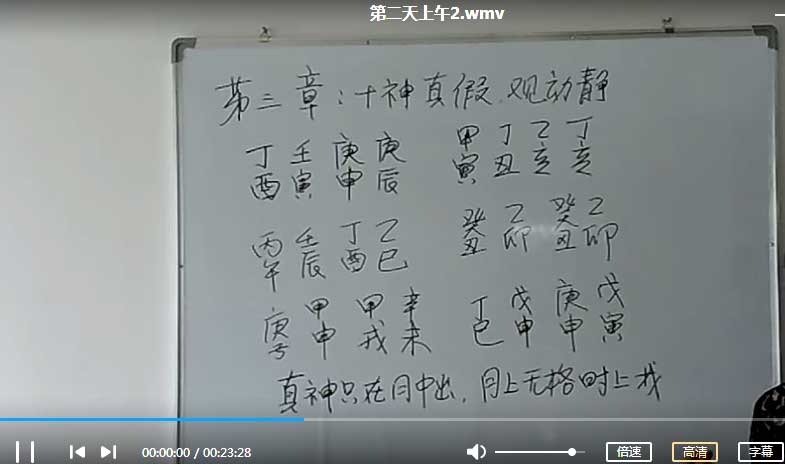 第二天上午2.wmv
第三章:十神真假.观动静
丁壬庚庚 甲丁乙丁
酉寅申辰 寅丑亥亥
丙壬丁乙 癸乙癸乙
午辰酉巳 丑卯丑卯
庚甲甲辛 丁戊庚戊
子申戌未 巳申申寅
真神只在月中出,月上无格时上找
00:00:00 / 00:23:28 倍速 高清 字幕